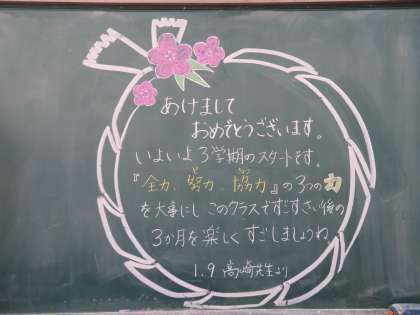 あけまして
おめでとうございます。
いよいよ3学期のスタートです。
『全力、努力、協力』の3つの力
を大事にし このクラスですごすさい後の
3か月を楽しくすごしましょうね。
1.9 高崎先生より